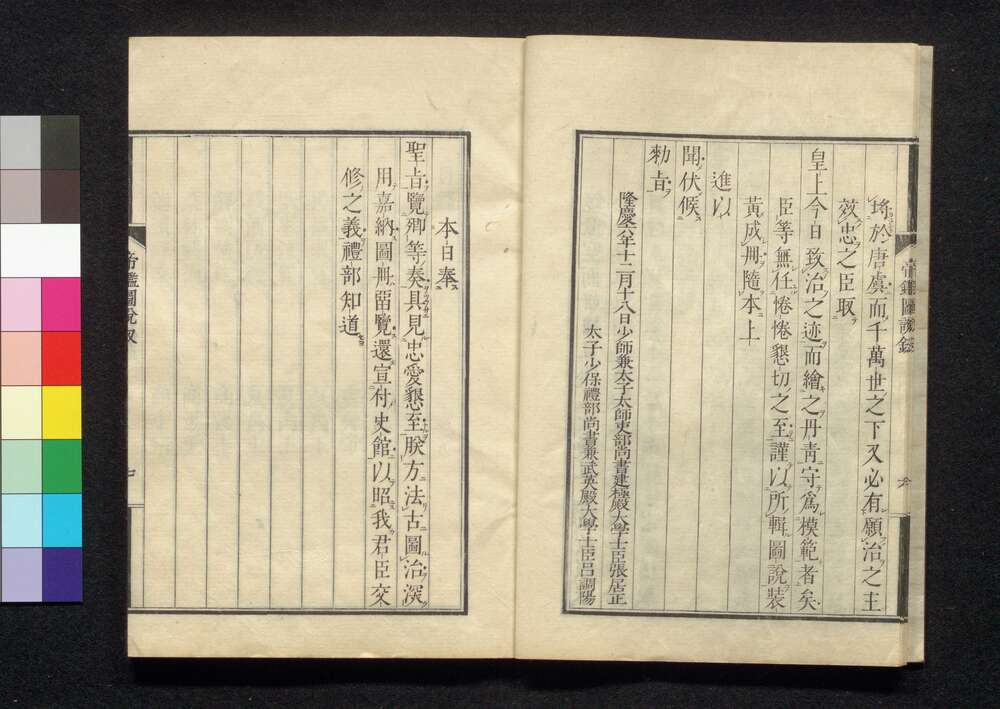 將於唐虞而千萬世之下又必有願治之主
效忠之臣取
皇上今日致治之迹而繪之丹靑守爲模範者矣
臣等無任惓惓懇切之至謹以所輯圖說裝
黃成冊隨本上
進以
聞伏候
勑旨
隆慶六年十二月十八日少師兼太子太師吏部尚書建極殿大學士臣張居正
太子少保禮部尚書兼武英殿大學士臣呂調陽
本日奉
聖旨覽卿等奏具見忠愛懇至朕方法古圖治深
用嘉納圖冊留覽還宣付史館以昭我君臣交
修之義禮部知道
帝鑑圖說
六
帝鑑圖說
七